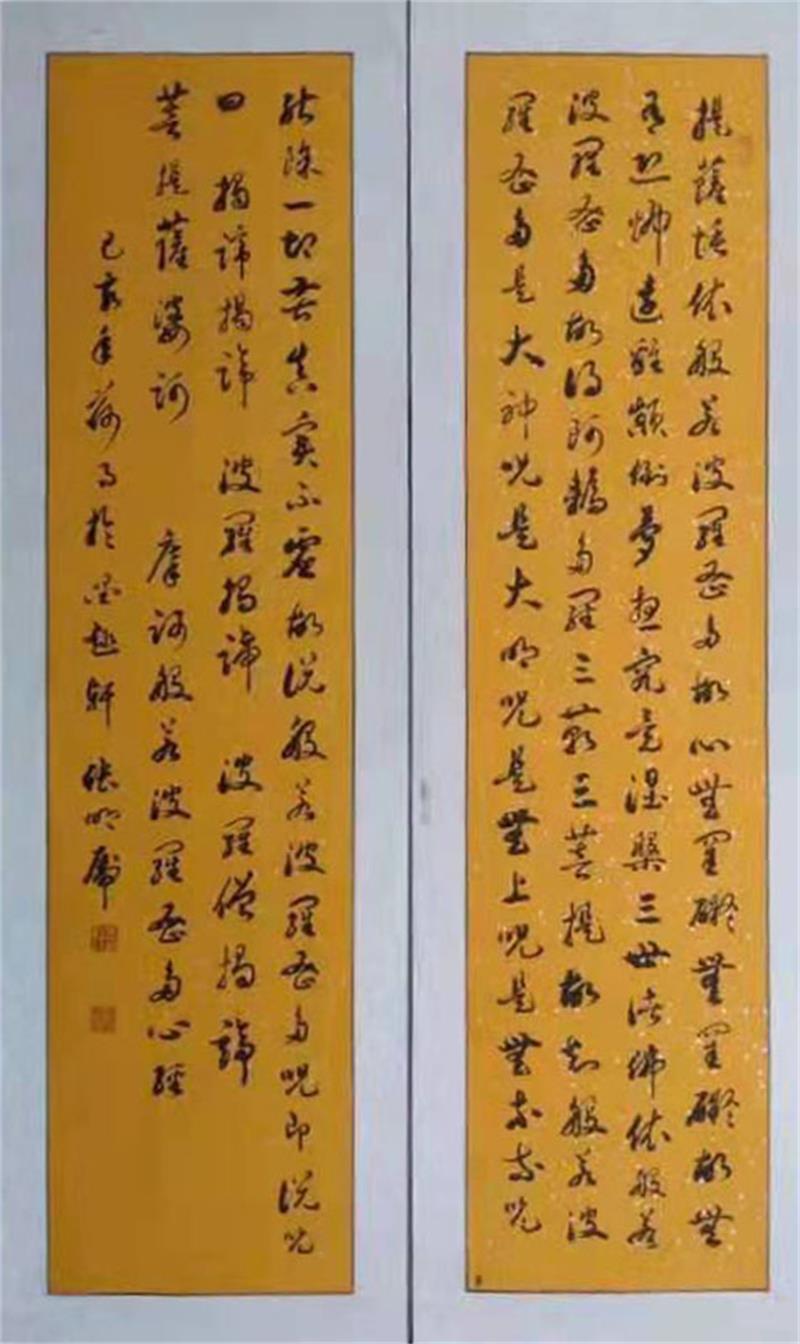 提薩埵依般若波羅蜜多故心無罣礙無罣礙故無
有恐怖遠離顛倒夢想究竟涅槃三世諸佛依般若
波羅蜜多故得阿耨多羅三藐三菩提故知般若波
羅蜜多是大神呪是大明呪是無上呪是無等等呪
能除一切苦真實不虛故説般若波羅蜜多呪即説呪
曰 揭諦揭諦 波羅揭諦 波羅僧揭諦
菩提薩婆訶 摩訶般若波羅蜜多心經
己亥年荷月於墨趣軒 張明